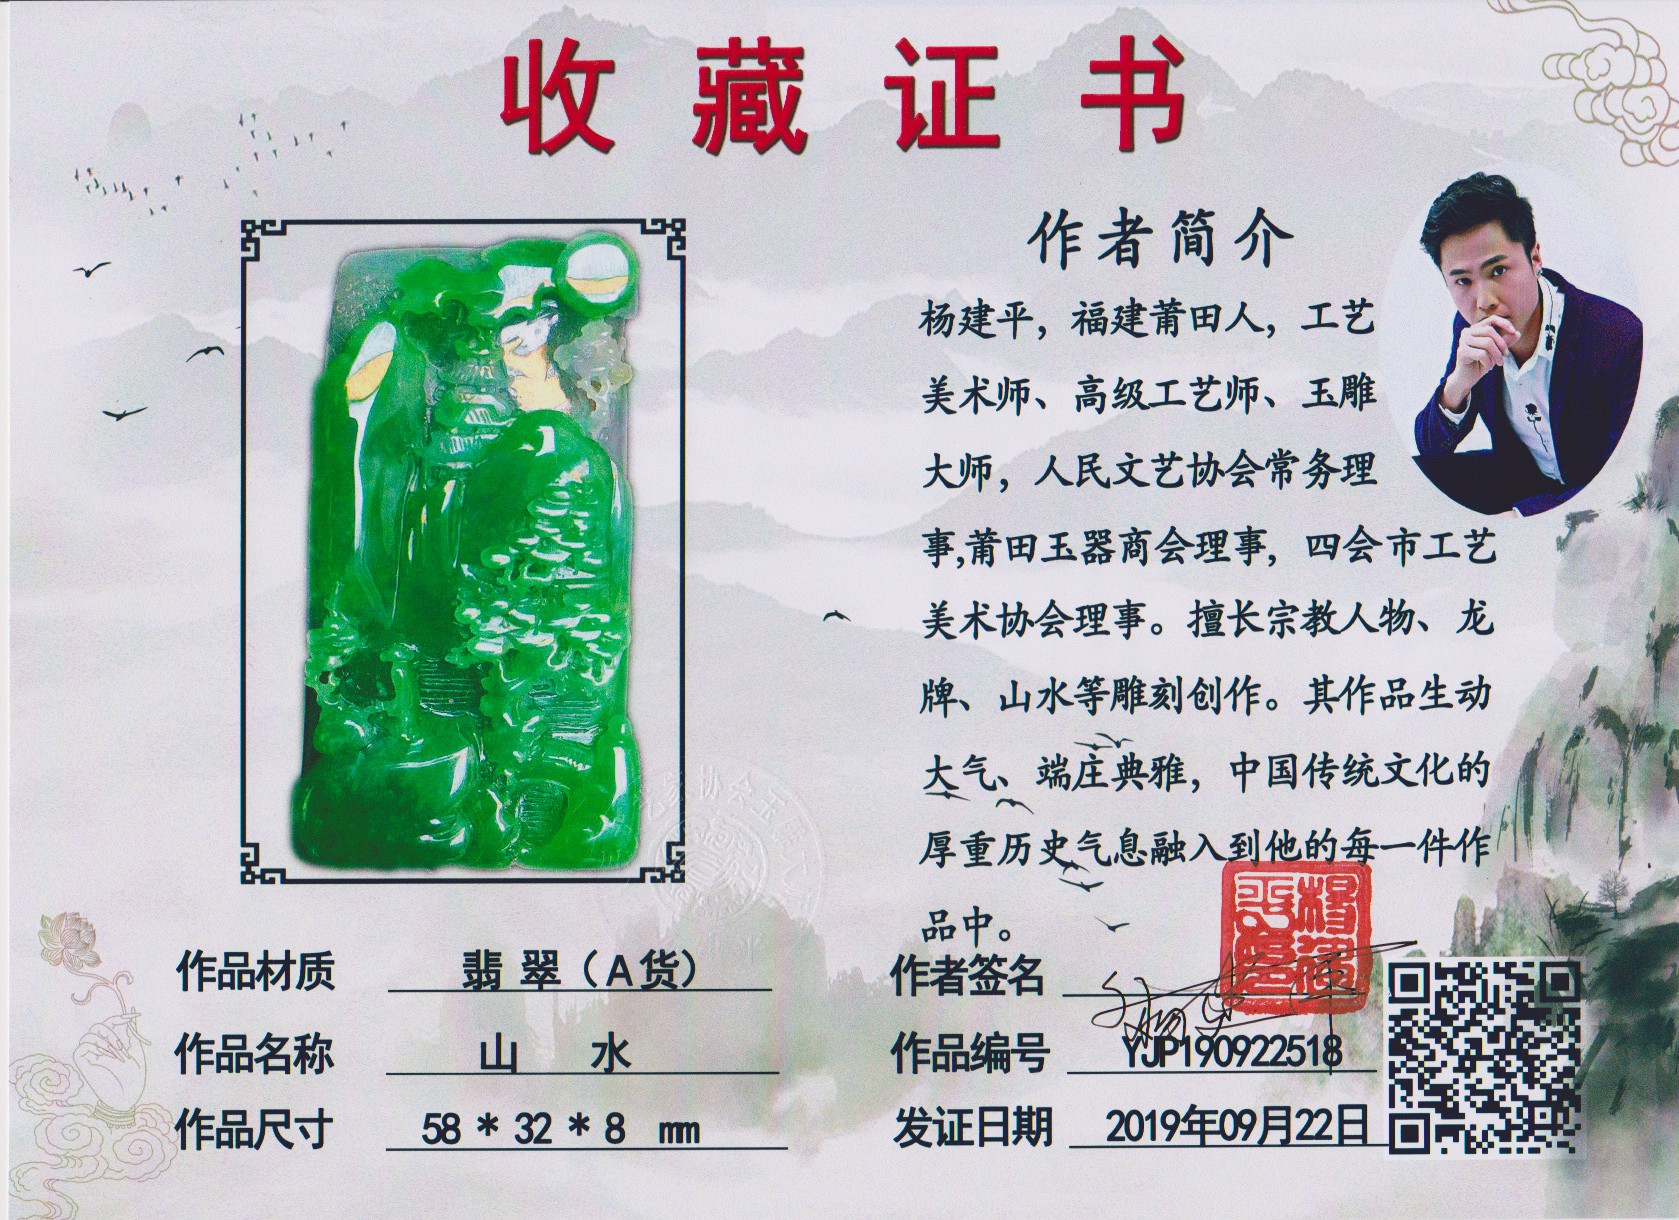 收藏证书
作者简介
杨建平，福建莆田人，工艺
美术师、高级工艺师、玉雕
大师，人民文艺协会常务理
事,莆田玉器商会理事，四会市工艺
美术协会理事。擅长宗教人物、龙
牌、山水等雕刻创作。其作品生动
大气、端庄典雅，中国传统文化的
厚重历史气息融入到他的每一件作
品中。
作品材质 翡翠（A货）
作品名称 山 水
作品尺寸 58＊32＊8 mm
作者签名
作品编号 YJP190922518
发证日期 2019年09月22日